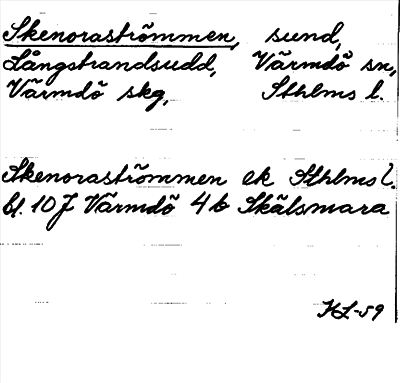 Skenoraströmmen, sund,
Långstrandsudd, Värmdö sn,
Värmdö skg, Sthlms l.
Skenoraströmmen ek Sthlms l.
bl. 10J Värmdö 4b Skälsmara
KL-59